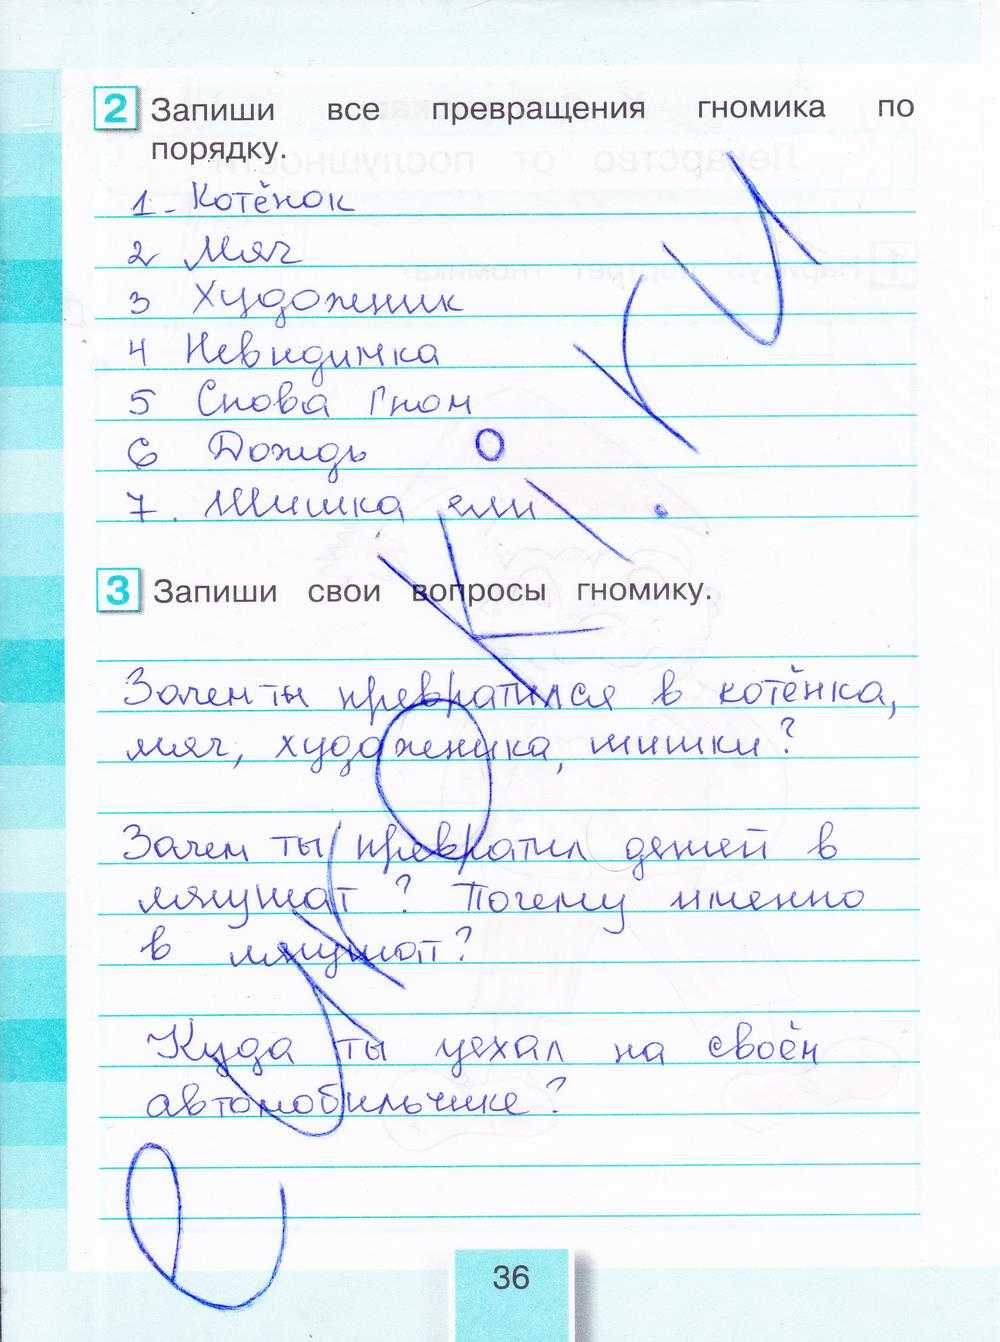 2 Запиши все превращения гномика по
порядку.
1 - Котёнок
2 Мяч
3 Художник
4 Невидимка
5 Снова Гном
6 Дождь
7. Шишка ели
3 Запиши свои вопросы гномику.
Зачем ты превратился в котёнка,
мяч, художника, шишки?
Зачем ты превратил детей в
лягушат? Почему именно
в лягушат?
Куда ты уехал на своём
автомобильчике?
36